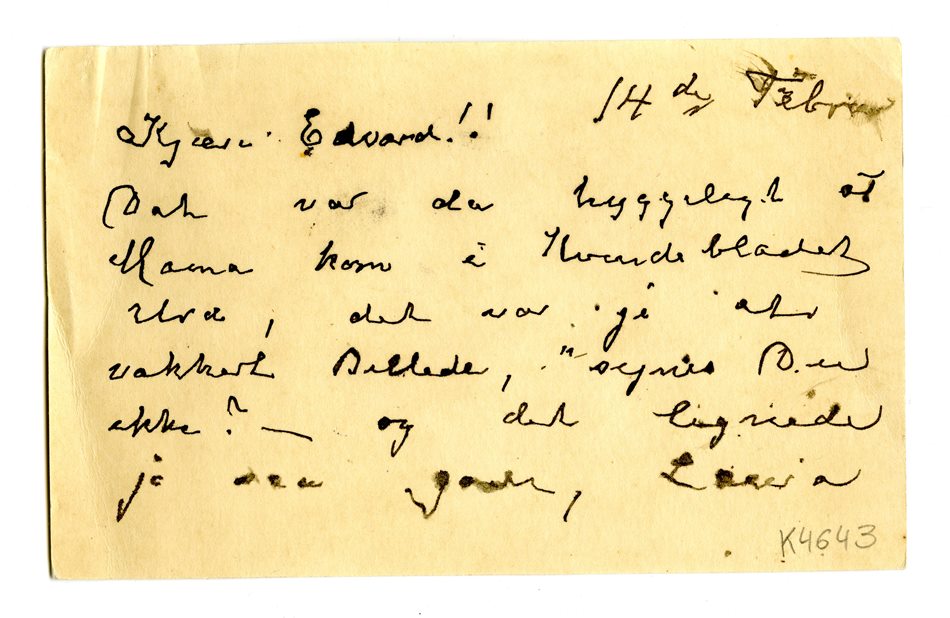 14de Februar
Kjære Edvard!!
Det var da hyggeligt at
Mama kom i Kvindebladet
det var jo
vakkert Billede, synes Du
ikke? — og det lignede
ja saa godt,
K4643